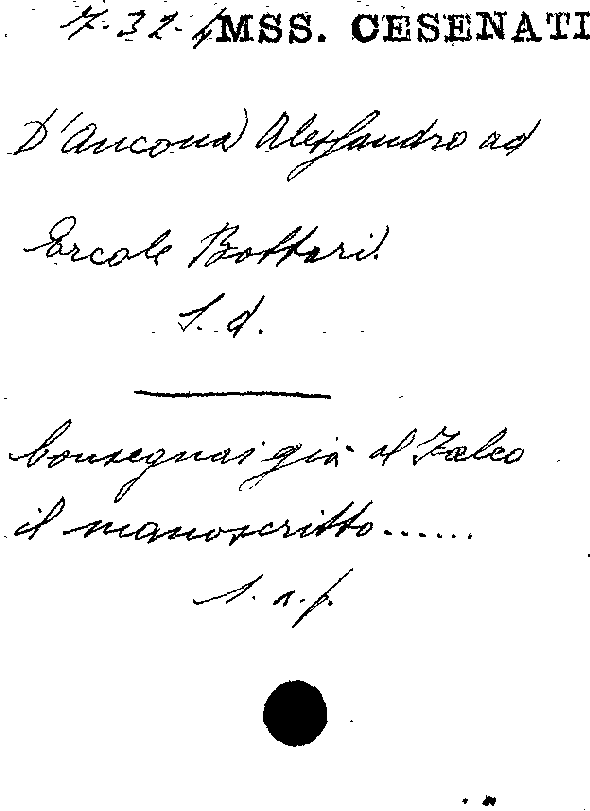 7-32-1 MSS. CESENATI
D'Ancona Alessandro ad
Ercole Bottari.
S. d.
Consegnai già al Falco
il manoscritto......
1. a. p.